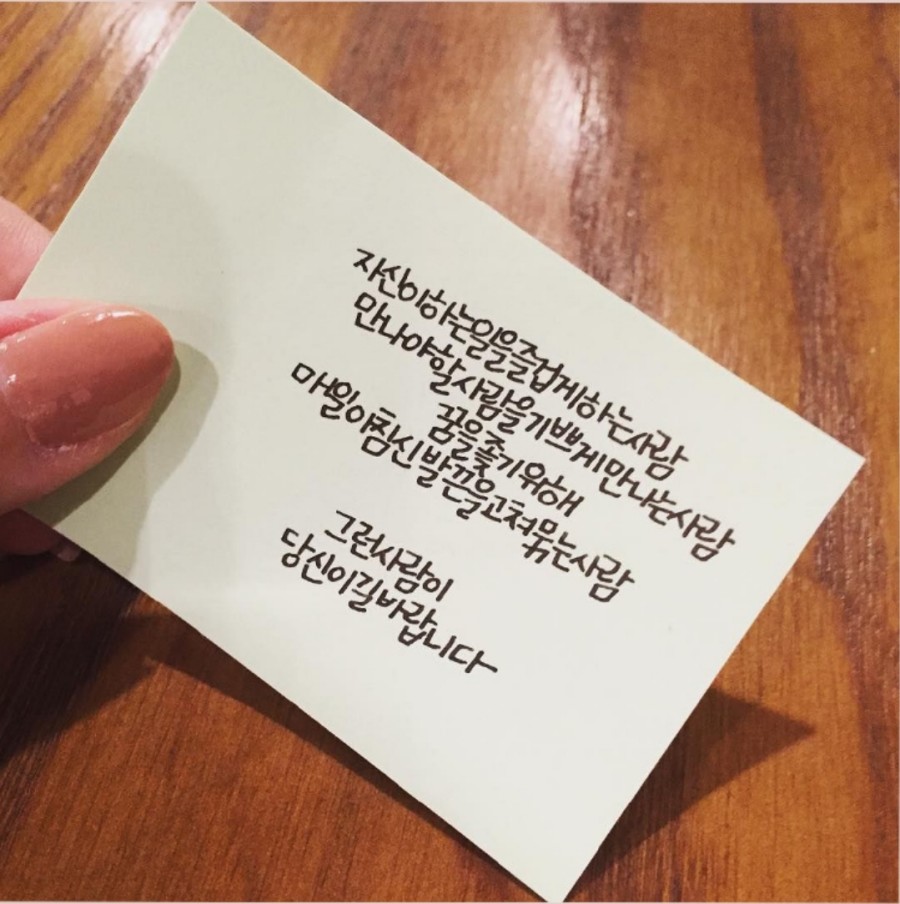 자신이하는일을즐겁게하는사람
만나야할사람을기쁘게만나는사람
꿈을쫓기위해
매일아침신발끈을고쳐묶는사람
그런사람이
당신이길바랍니다